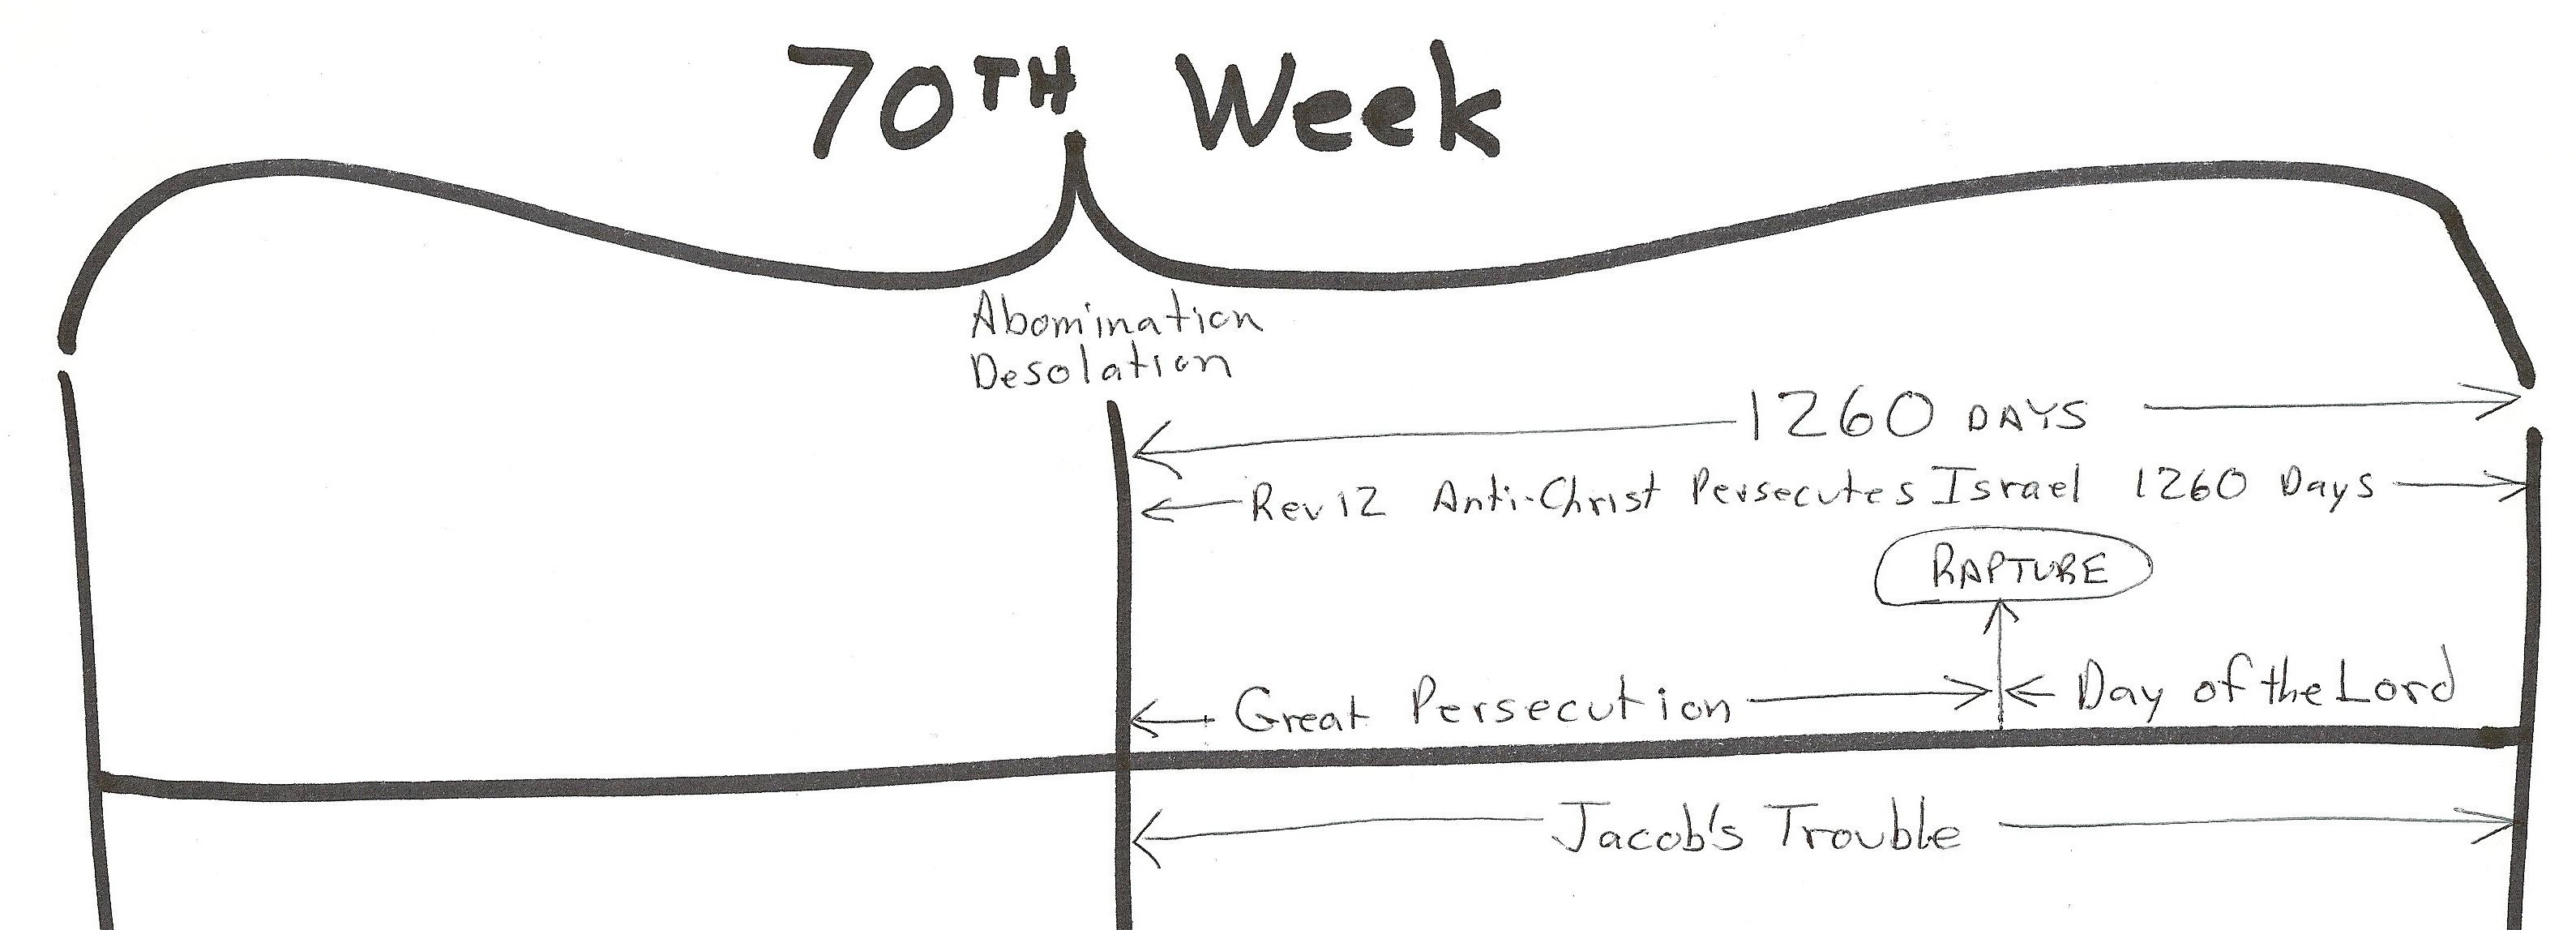 70TH Week
Abomination
Desolation
1260 DAYS
Rev 12 Anti-Christ Persecutes Israel 1260 Days
RAPTURE
Great Persecution
Day of the Lord
Jacob's Trouble